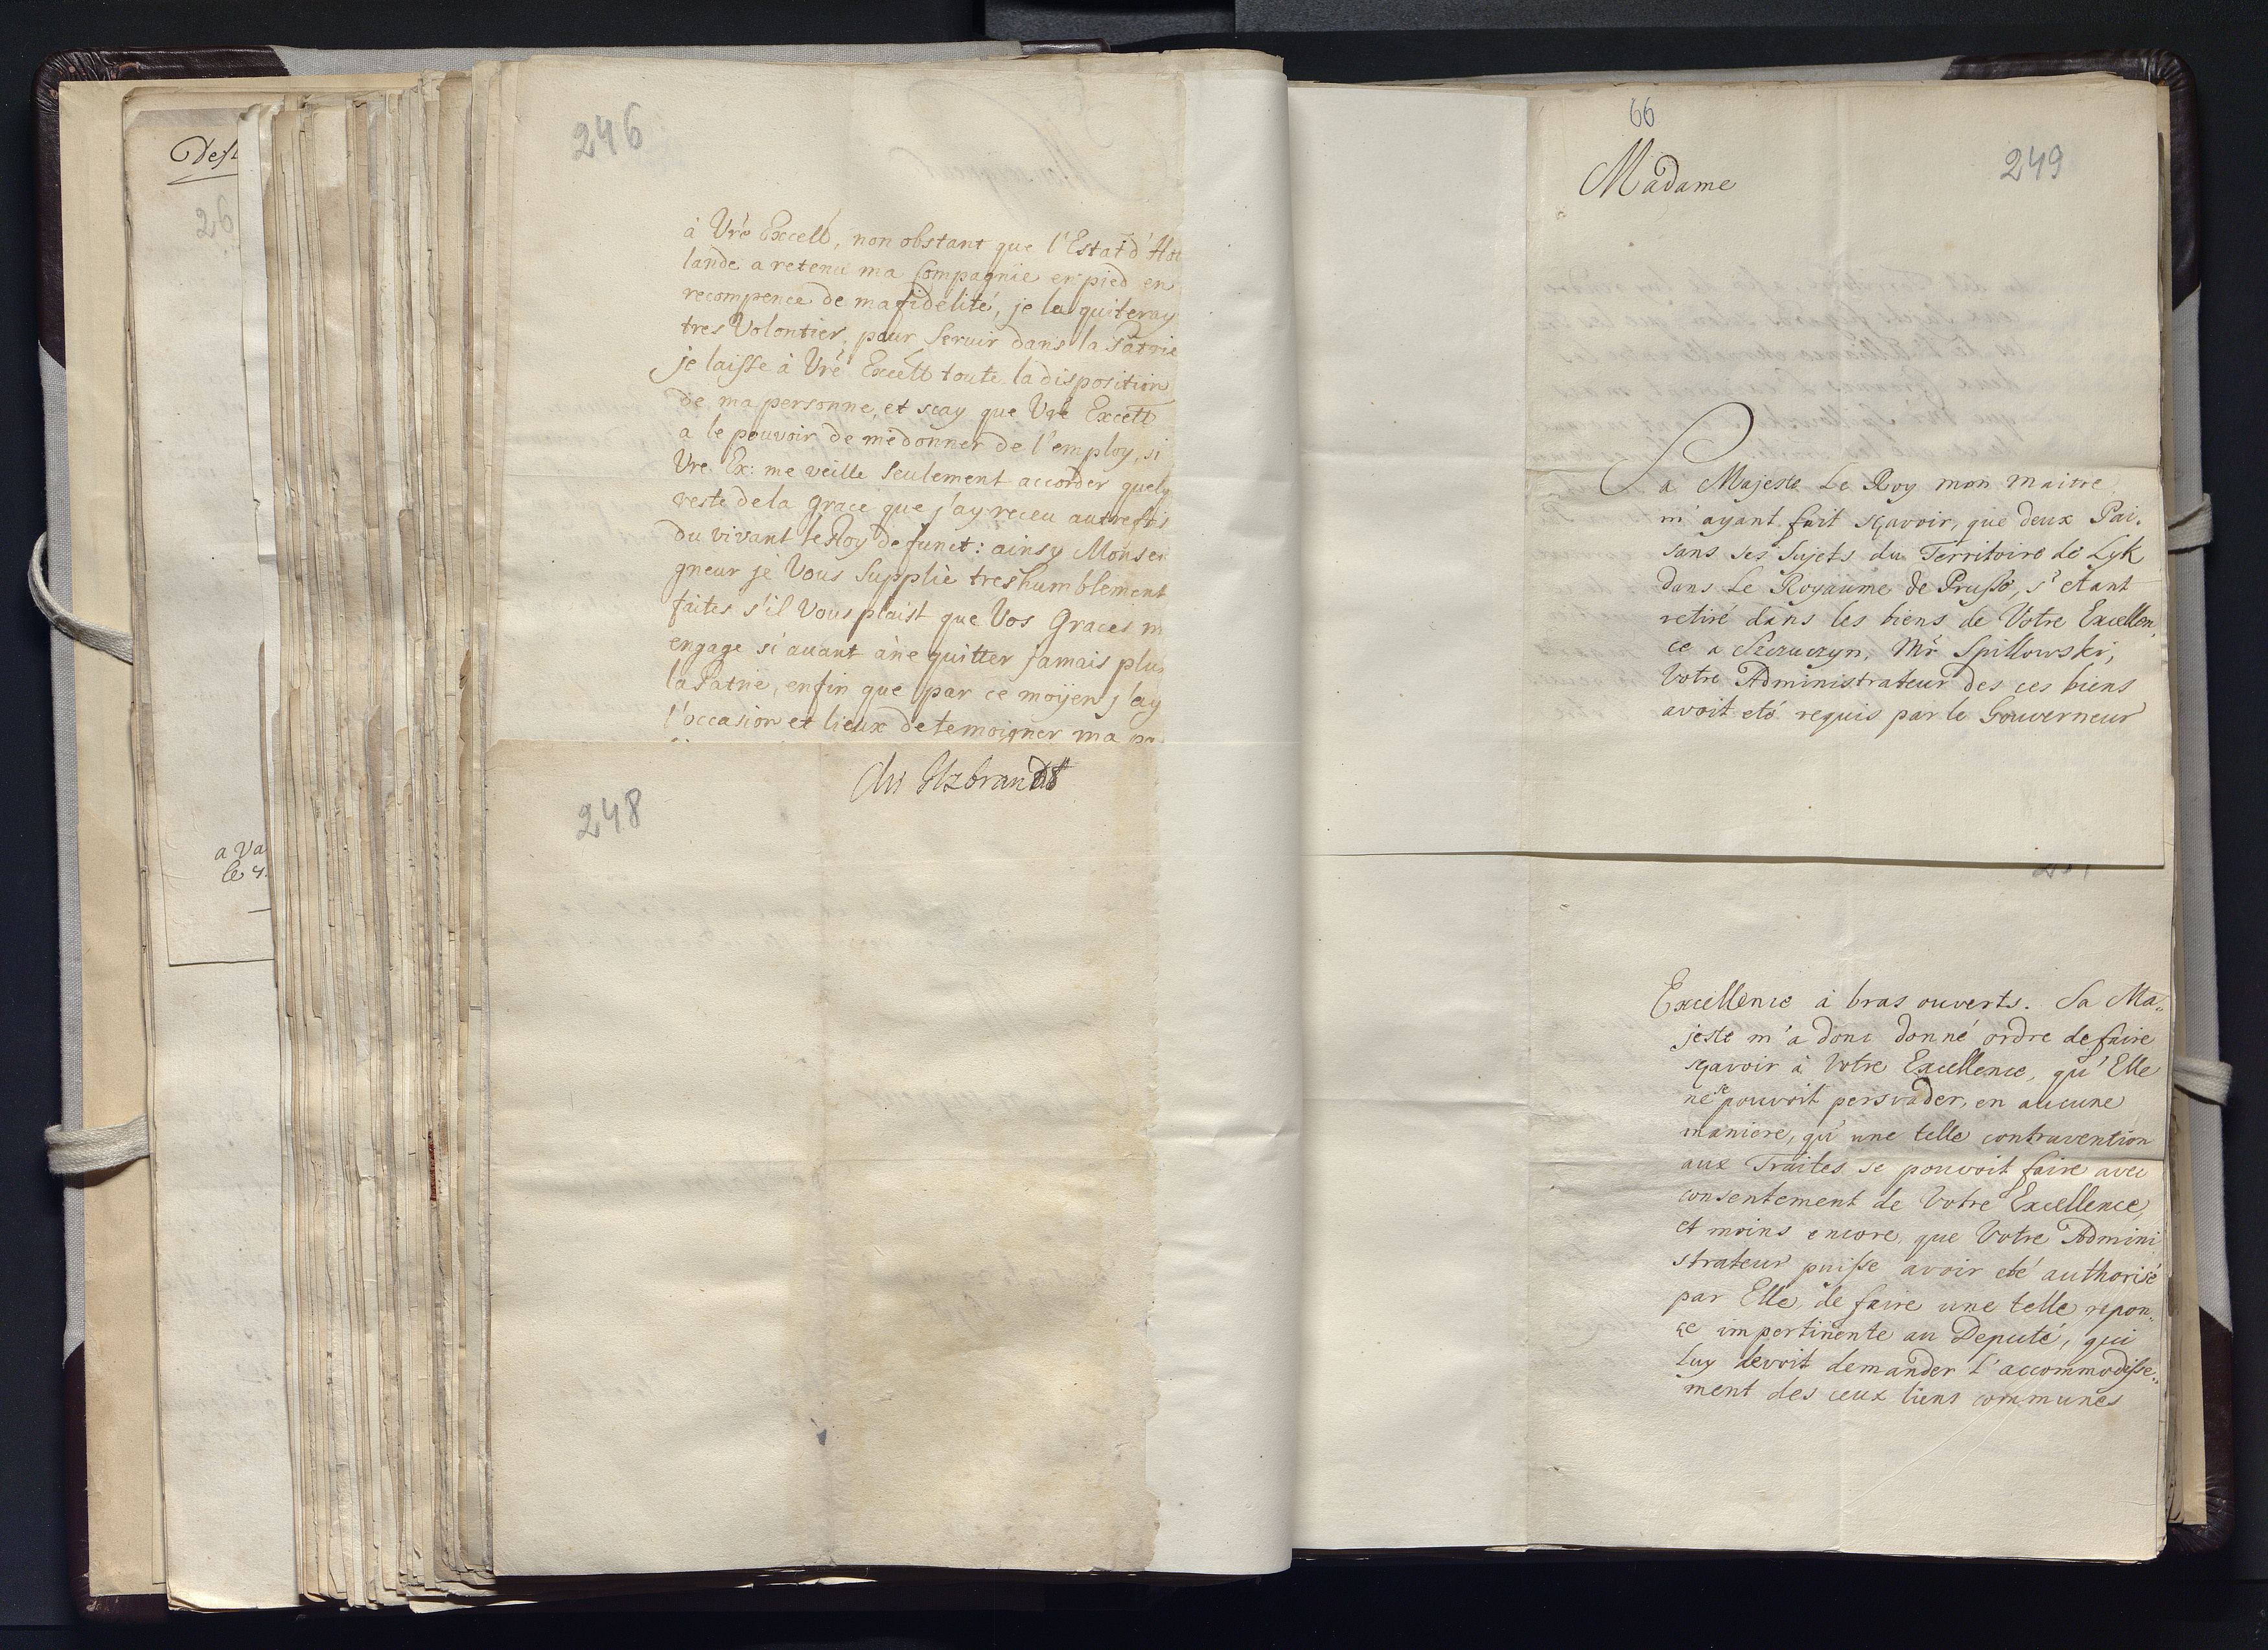 Dest
26
a Va
le
246
à Vre Excell, non obstant que l'Estat d'Hol
lande a retenu ma Compagnie en pied en
recompence de ma fidelité, je la quiteray
tres Volontier, pour Servir dans la Patrie
je laisse à Vre Excell toute la disposition
de ma personne, et scay que Vre Excell
a le pouvoir de me donner de l'employ, si
Vre Ex: me veille Seulement accorder quelq
reste de la grace que j'ay receu autrefois
du vivant le Roy defunct: ainsy Monsei
gneur je Vous Supplie treshumblement
faites s'il Vous plaist que Vos Graces m
engage si avant à ne quitter jamais plus
la Patrie, enfin que par ce moÿen j'ay
l'occasion et lieux de temoigner ma
248
66
249
Madame
Sa Majeste Le Roy mon maitre
m'ayant fait sçavoir, que deux Pai.
sans ses Sujets du Territoire de Lyk
dans Le Royaume de Prusse, s'etant
retiré dans les biens de Votre Excellen
ce a Szczuczyn, Mr Spillowski,
Votre Administrateur des ces biens
avoit eté requis par le Gouverneur
Excellence à bras ouverts. Sa Ma„
jeste m'a donc donné ordre de faire
sçavoir à Votre Excellence, qu'Elle
ne se pouvoit persvader, en aucune
maniere, qu'une telle contravention
aux Traites se pouvoit faire avec
consentement de Votre Excellence,
et moins encore, que Votre Admini
strateur puisse avoir eté authorisé
par Elle, de faire une telle repon„
çe impertinente au Deputé, qui
Luy devoit demander l'accommodisse„
ment des ceux liens communes